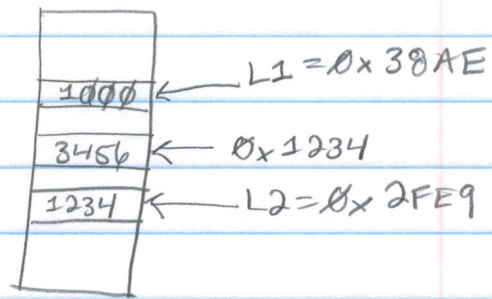 1000 ← L1 = 0x 38AE
3456 ← 0x 1234
1234 ← L2 = 0x 2FE9